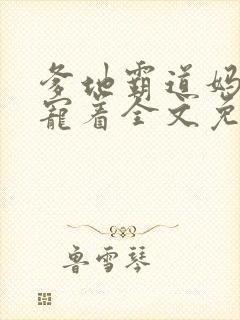 爹地霸道妈
宠着全文免
鲁雪琴